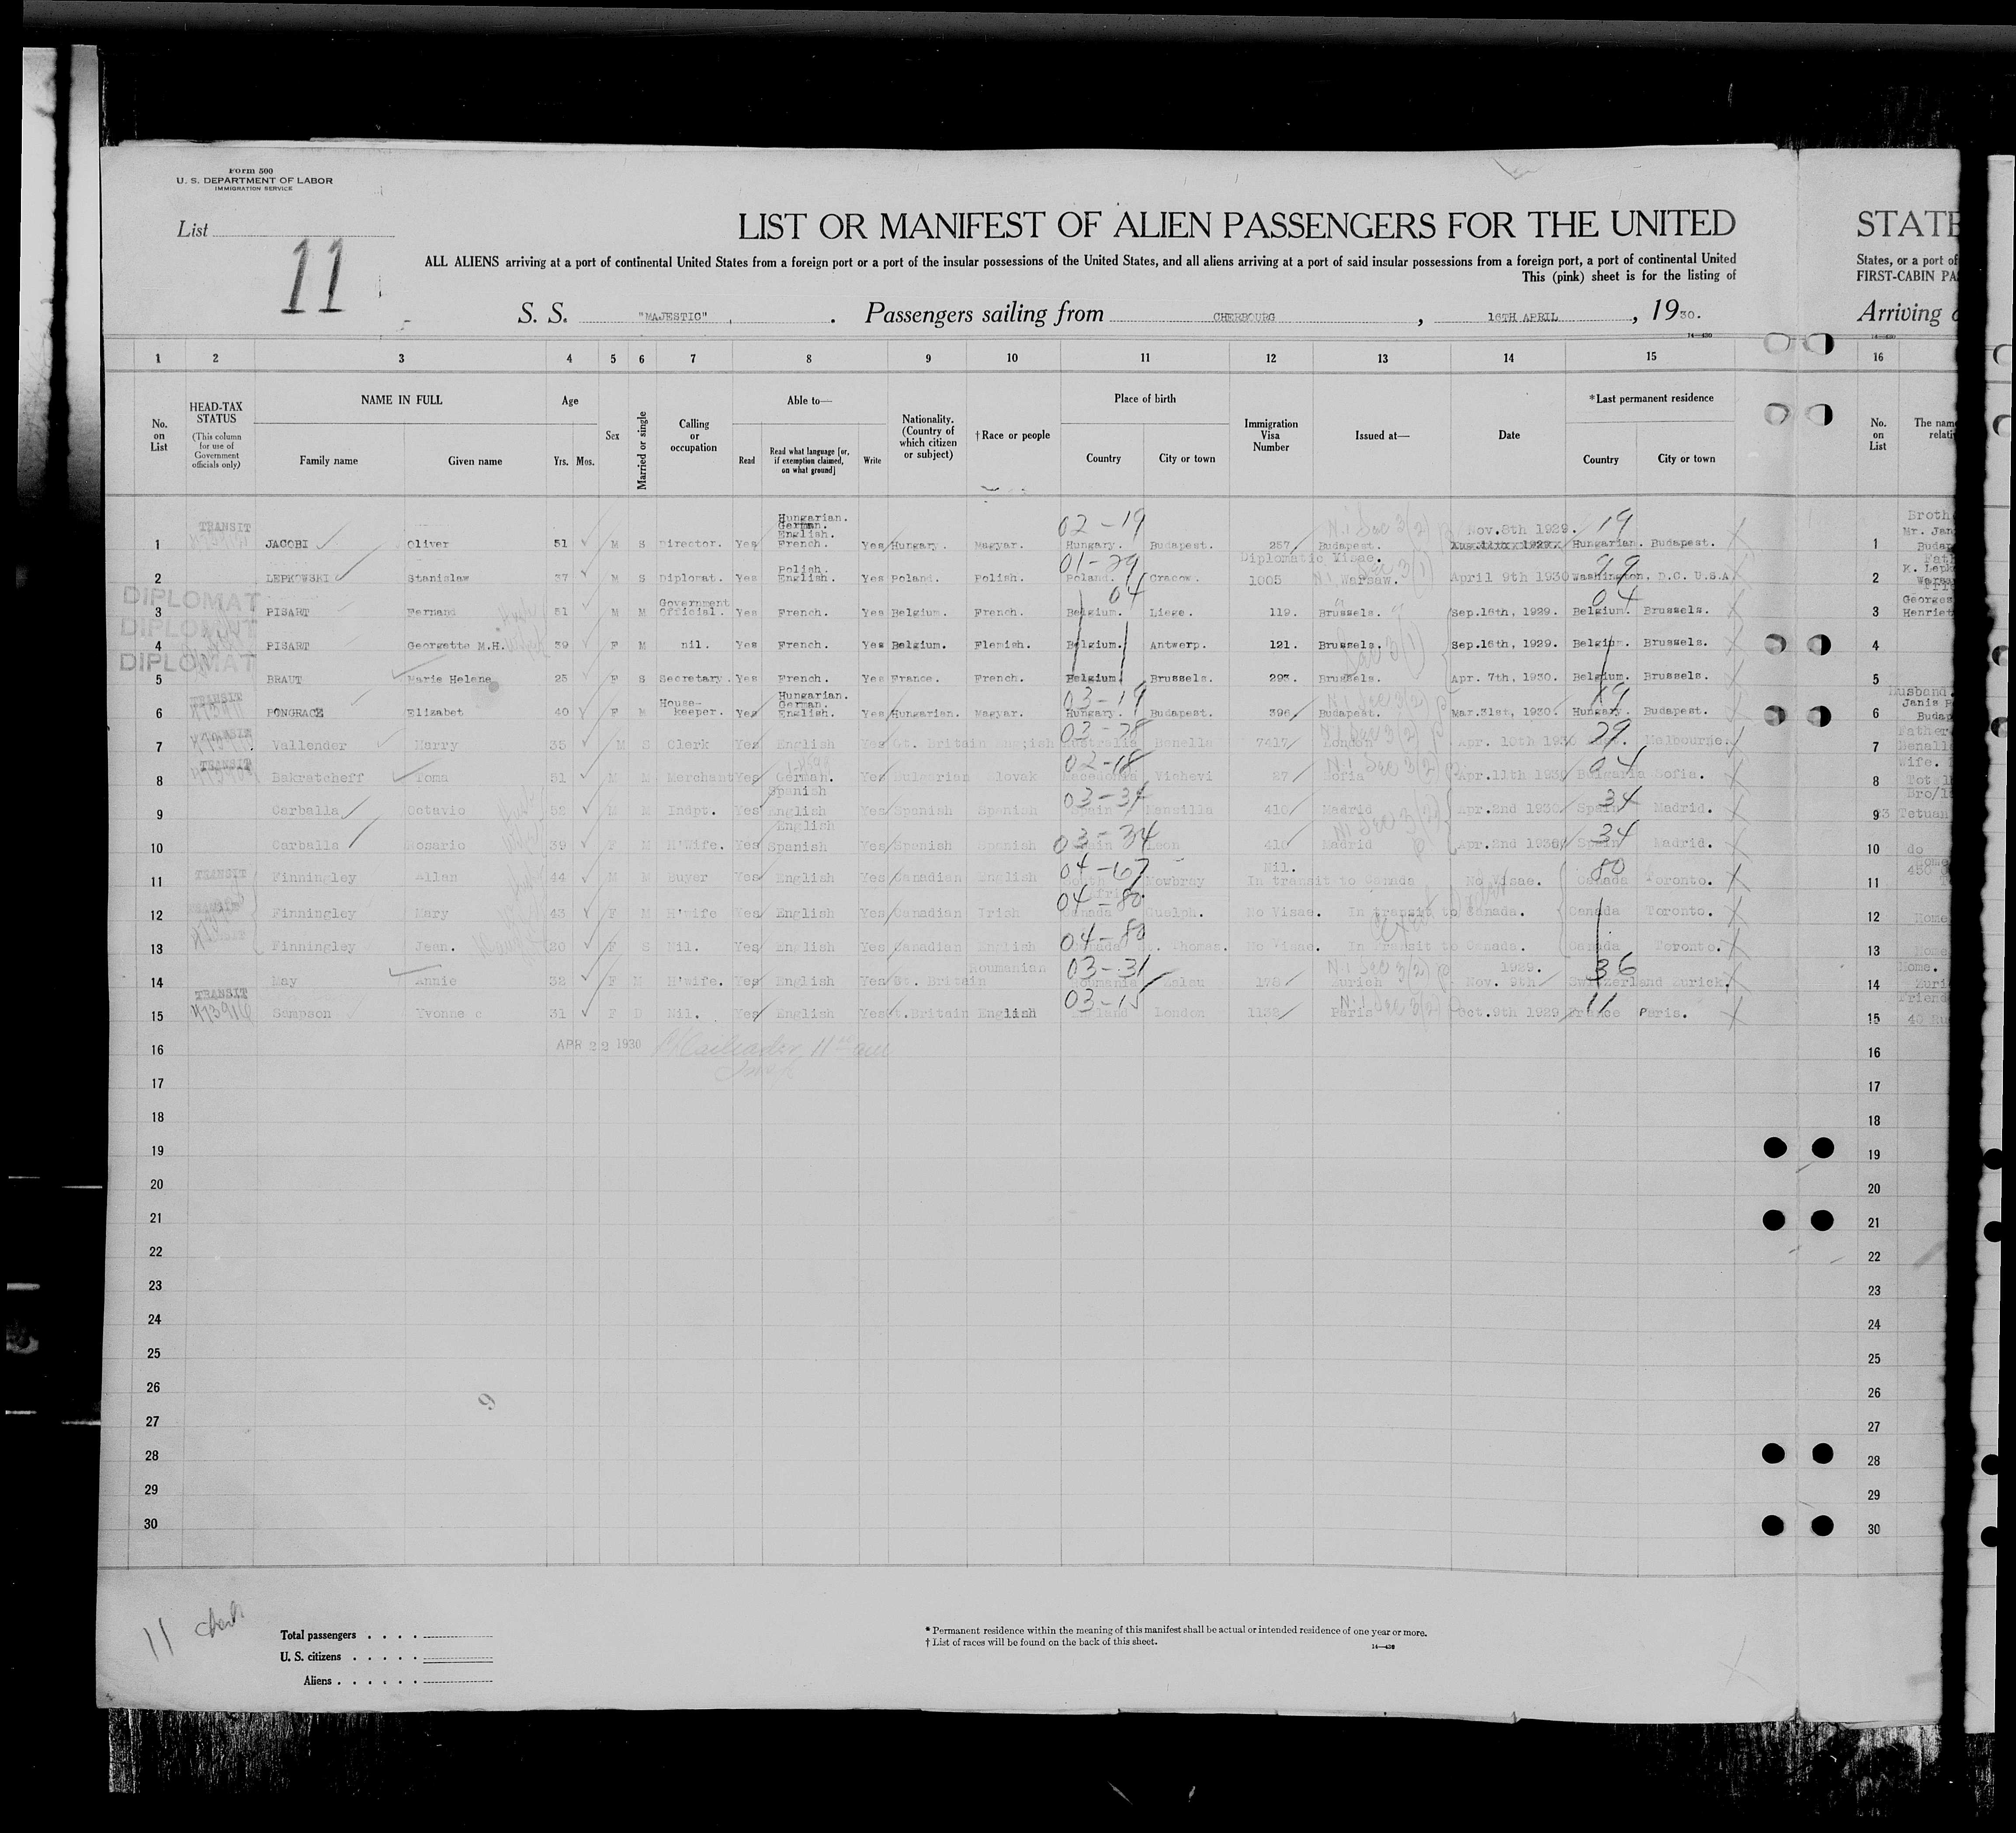 Form 500
U. S. DEPARTMENT OF LABOR
IMMIGRATION SERVICE
List 11
LIST OR MANIFEST OF ALIEN PASSENGERS FOR THE UNITED
STATE
ALL ALIENS arriving at a port of continental United States from a foreign port or a port of the insular possessions of the United States, and all aliens arriving at a port of said insular possessions from a foreign port, a port of continental United
States, or a port of
This (pink) sheet is for the listing of
FIRST-CABIN PA
S. S. "MAJESTIC" . Passengers sailing from CHERBOURG , 16TH APRIL , 1930.
Arriving
14—430
1 2 3 4 5 6 7 8 9 10 11 12 13 14 15 16
No. on List
HEAD-TAX STATUS
(This column for use of Government officials only)
NAME IN FULL
Family name Given name
Age
Yrs. Mos.
Sex
Married or single
Calling or occupation
Able to—
Read
Read what language [or, if exemption claimed, on what ground]
Write
Nationality. (Country of which citizen or subject)
† Race or people
Place of birth
Country City or town
Immigration Visa Number
Issued at—
Date
*Last permanent residence
Country City or town
No. on List
The nam
relati
TRANSIT Hungarian. German. English. 02-19 N.I Sec 3(2) Nov.8th 1929. 19 Broth
1 JACOBI Oliver 51 M S Director. Yes French. Yes Hungary. Magyar. Hungary. Budapest. 257 Budapest. Hungarian. Budapest. 1 Mr. Jan Budap
Polish. 01-29 Diplomatic Visae. 99 Fath
2 LEPKOWSKI Stanislaw 37 M S Diplomat. Yes English. Yes Poland. Polish. Poland. Cracow. 1005 Warsaw. April 9th 1930 Washington, D.C. U.S.A. 2 K. Lepk Warsa
DIPLOMAT Government 04 04
3 PISART Fernand 51 M M Official. Yes French. Yes Belgium. French. Belgium. Liege. 119. Brussels. Sep.16th, 1929. Belgium. Brussels. 3 Georges Henriet
DIPLOMAT
4 PISART Georgette M.H. 39 F M nil. Yes French. Yes Belgium. Flemish. Belgium. Antwerp. 121. Brussels. Sep.16th, 1929. Belgium. Brussels. 4
DIPLOMAT Sec 3(1)
5 BRAUT Marie Helene 25 F S Secretary. Yes French. Yes France. French. Belgium. Brussels. 293. Brussels. Apr. 7th, 1930. Belgium. Brussels. 5
TRANSIT House- Hungarian. German. 03-19 N.I Sec 3(2) 19 Husband
6 PONGRACZ Elizabet 40 F M keeper. Yes English. Yes Hungarian. Magyar. Hungary. Budapest. 396 Budapest. Mar.31st, 1930. Hungary. Budapest. 6 Janis P Budap
TRANSIT 03-38 N.I Sec 3(2) 39. Father
7 Vallender Hurry 35 M S Clerk Yes English Yes Gt. Britain English Australia Benella 7417 London Apr. 10th 1930 Melbourne. 7 Benalla
TRANSIT 02-18 N.I Sec 3(2) 04 Wife.
8 Bakratcheff Toma 51 M M Merchant Yes German. Yes Bulgarian Slovak Macedonia Vichevi 27 Sofia Apr.11th 1930 Bulgaria Sofia. 8 Totel
Spanish 03-34 34 Bro/l
9 Carballa Octavio 52 M M Indpt. Yes English Yes Spanish Spanish Spain Mansilla 410 Madrid Apr.2nd 1930 Spain Madrid. 9 Tetuan
English 03-34 N.I Sec 3(2) 34
10 Carballa Rosario 39 F M H'Wife. Yes Spanish Yes Spanish Spanish Spain Leon 410 Madrid Apr.2nd 1930 Spain Madrid. 10 do
TRANSIT 04-67 Nil. 80 Home
11 Finningley Allan 44 M M Buyer Yes English Yes Canadian English South Africa Mowbray In transit to Canada No Visae. Canada Toronto. 11 450
04-80
12 Finningley Mary 43 F M H'wife Yes English Yes Canadian Irish Canada Guelph. No Visae. In transit to Canada. Canada Toronto. 12 Home
04-80
13 Finningley Jean. 20 F S Nil. Yes English Yes Canadian English Canada St. Thomas. No Visae. In transit to Canada. Canada Toronto. 13 Home
Roumanian 03-31 N.I Sec 3(2) 1929. 36 Home.
14 May Annie 32 F M H'wife. Yes English Yes Gt. Britain Roumania Zalau 178 Zurich Nov. 9th Switzerland Zurick. 14 Zuri
TRANSIT 03-15 N.I Sec 3(2) 11 Friend
15 Sampson Yvonne c 31 F D Nil. Yes English Yes Gt.Britain English England London 1132 Paris Oct.9th 1929 France Paris. 15 40 Ru
16 APR 22 1930 16
17 17
18 18
19 19
20 20
21 21
22 22
23 23
24 24
25 25
26 26
27 27
28 28
29 29
30 30
11 check
Total passengers . . . .
U. S. citizens . . . . .
Aliens . . . . . .
* Permanent residence within the meaning of this manifest shall be actual or intended residence of one year or more.
† List of races will be found on the back of this sheet.
14—430